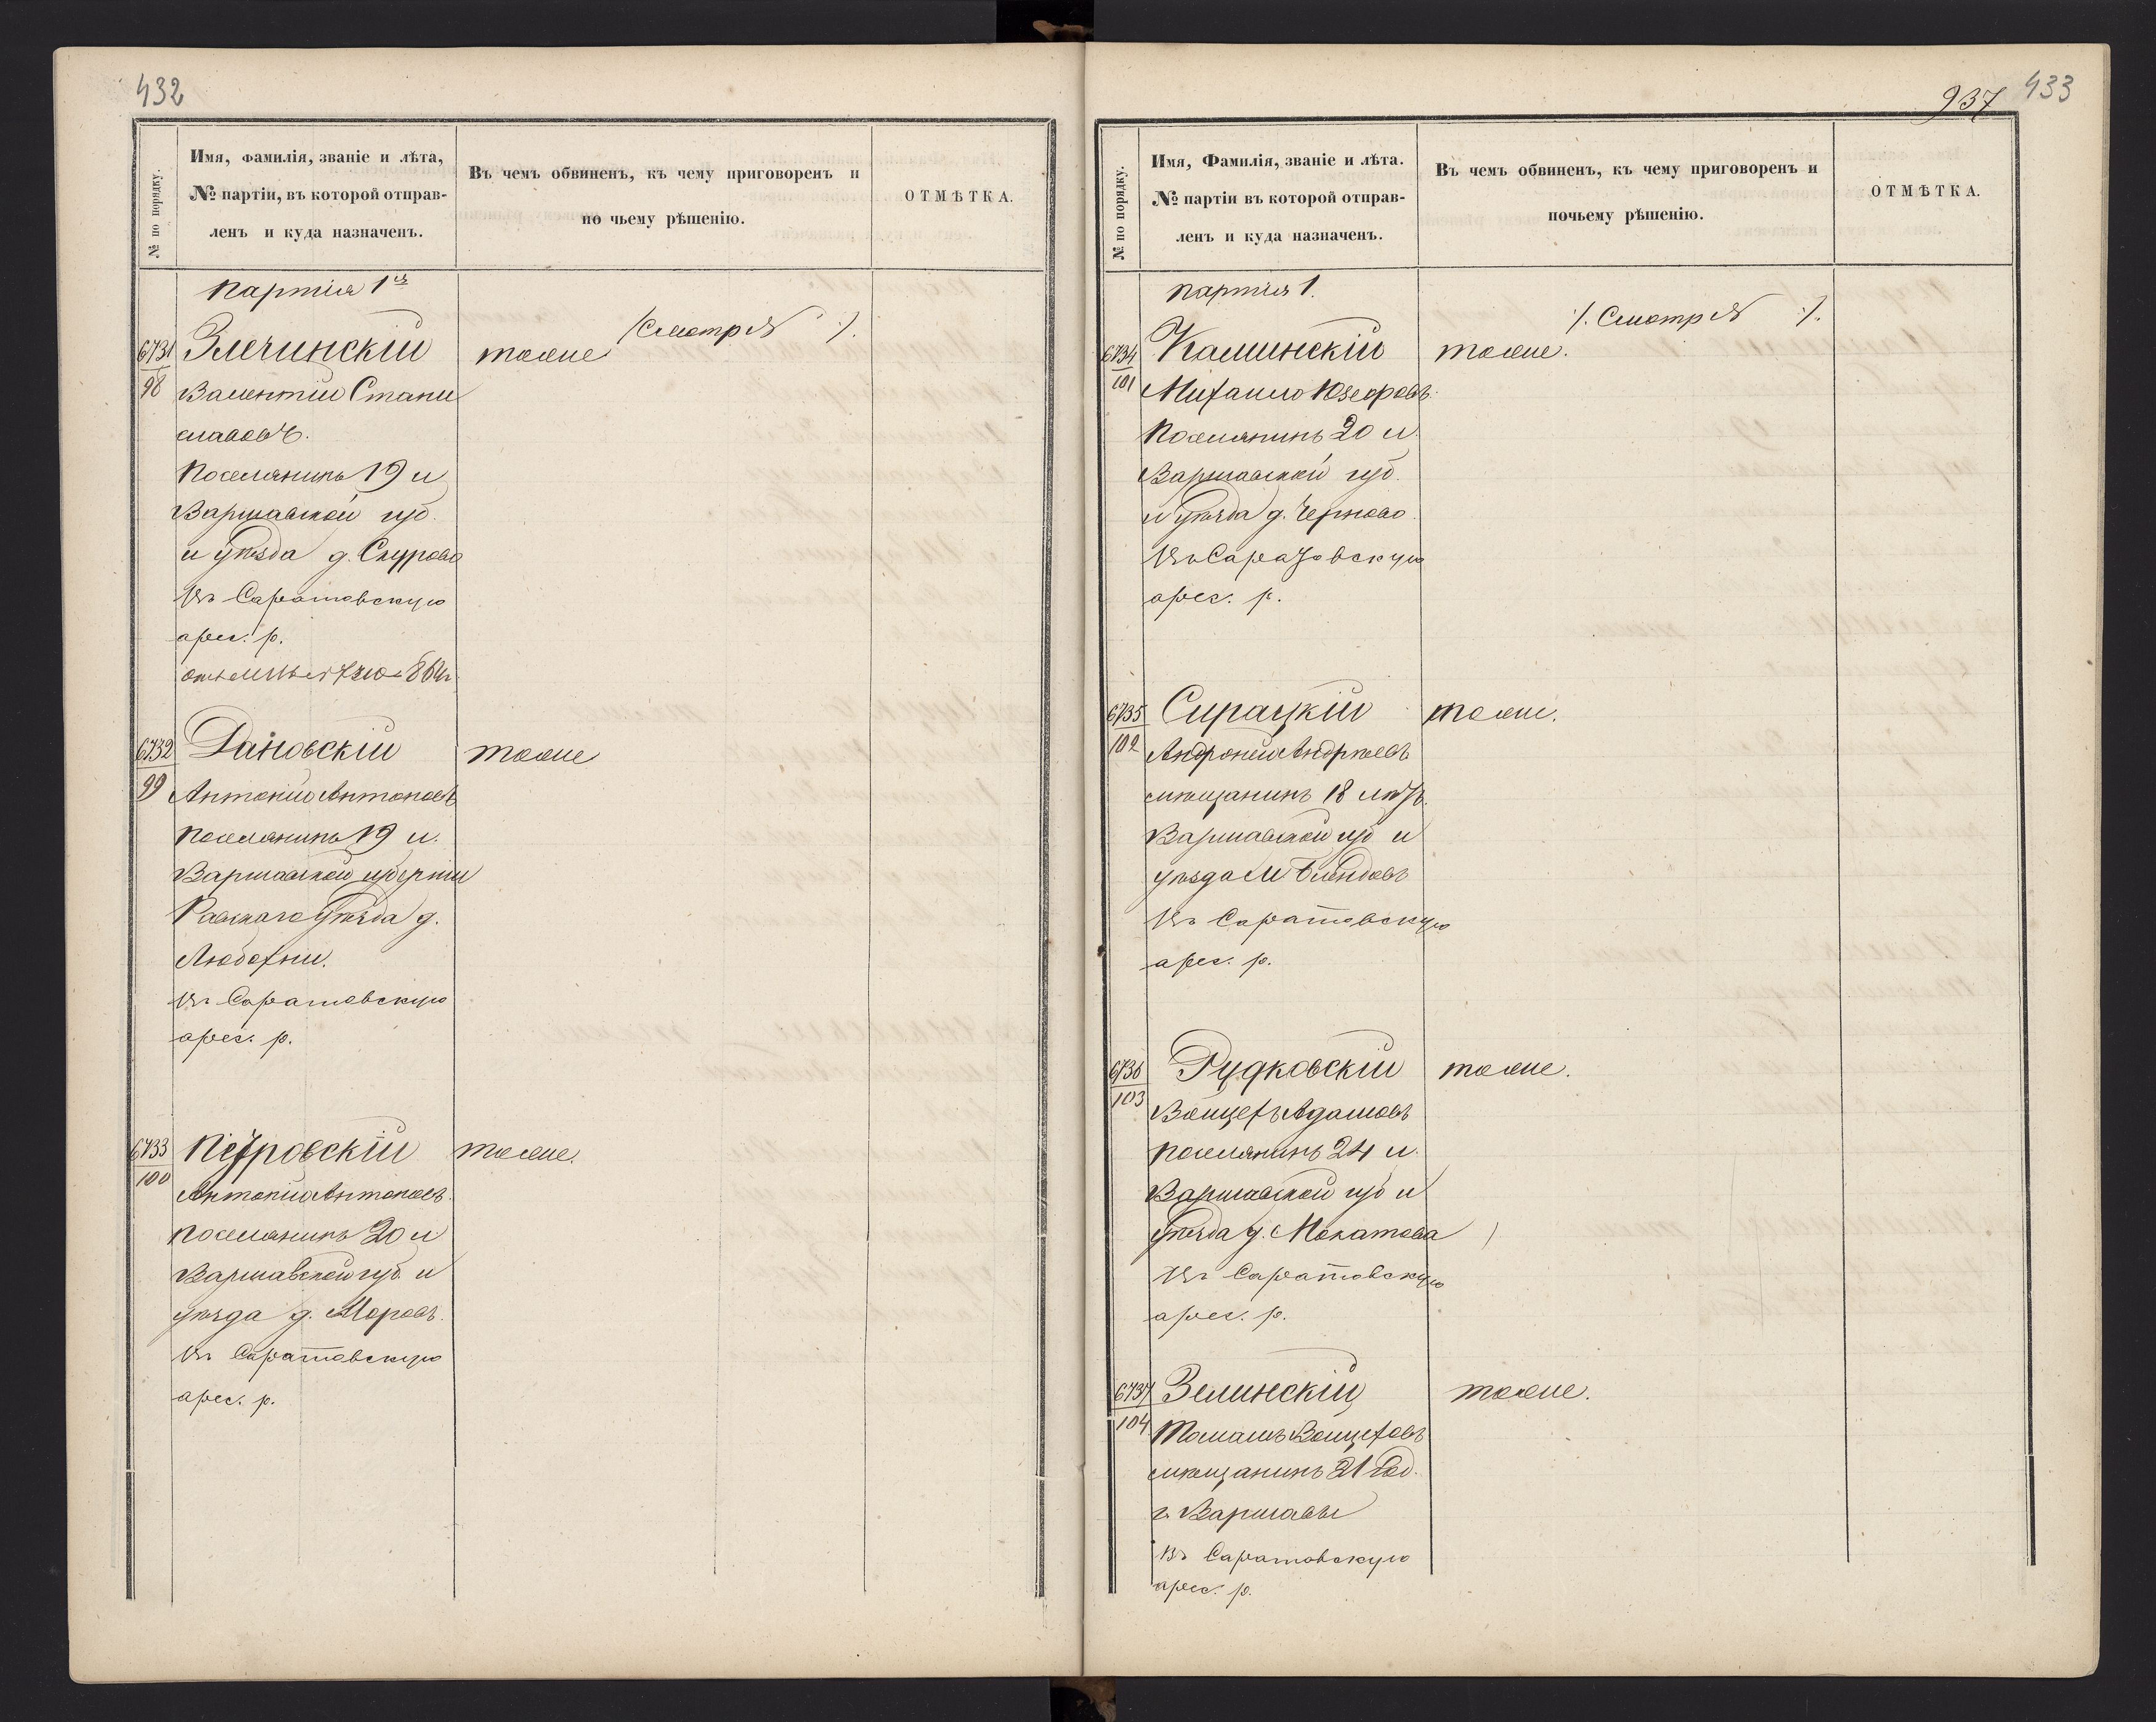 432
№ по порядку.
Имя, фамилія, званіе и лѣта,
№ партіи, въ которой отправ-
ленъ и куда назначенъ.
Въ чемъ обвиненъ, къ чему приговоренъ и
по чьему рѣшенію.
ОТМѢТКА.
Партія 1я
(Смотр №  ).
6731
98
Злечинскій
тоже
Валентій Стани
славовъ.
Поселянинъ 19 л
Варшавской губ.
и уѣзда д. Скурово
Въ Саратовскую
арес. р.
6732
99
Дановскій
тоже
Антоній Антоновъ
Поселянинъ 19 л.
Варшавской губерніи
Равскаго уѣзда д.
Любохни.
Въ Саратовскую
арес. р.
6733
100
Петровскій
тоже.
Антоній Антоновъ.
Поселянинъ 20 л
Варшавской губ и
уѣзда д. Моровъ.
Въ Саратовскую
арес. р.
937 433
№ по порядку.
Имя, Фамилія, званіе и лѣта.
№ партіи въ которой отправ-
ленъ и куда назначенъ.
Въ чемъ обвиненъ, къ чему приговоренъ и
почьему рѣшенію.
ОТМѢТКА.
Партія 1.
/. Смотр №  /.
6734
101
Каминскій
тоже.
Михаило Юзефовъ.
Поселянинъ 20 л.
Варшавской губ.
и уѣзда д. Черново.
Въ Саратовскую
арес. р.
6735
102
Сирацкій
тоже.
Андроній Андреевъ
мѣщанинъ 18 лѣтъ.
Варшавской губ и
уѣзда М Блендовъ
Въ Саратовскую
арес. р.
6736
103
Рудковскій
тоже.
Войцехъ Адамовъ
Поселянинъ 24 л.
Варшавской губ и
уѣзда д. Мокатова
Въ Саратовскую
арес. р.
6737
104
Зелинскій
тоже.
Томашъ Войцеховъ
мѣщанинъ 21 год.
г. Варшавы
Въ Саратовскую
арес. р.